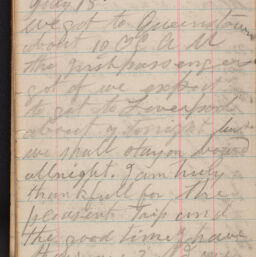 May 15
we got to Queenstown
about 10 Oc A M
the first passenger
got of we expect
to get to Liverpool
about 9 tonight but
we shall stay on board
allnight. I am truly
thankfull for the
pleasent trip and
the good time I have